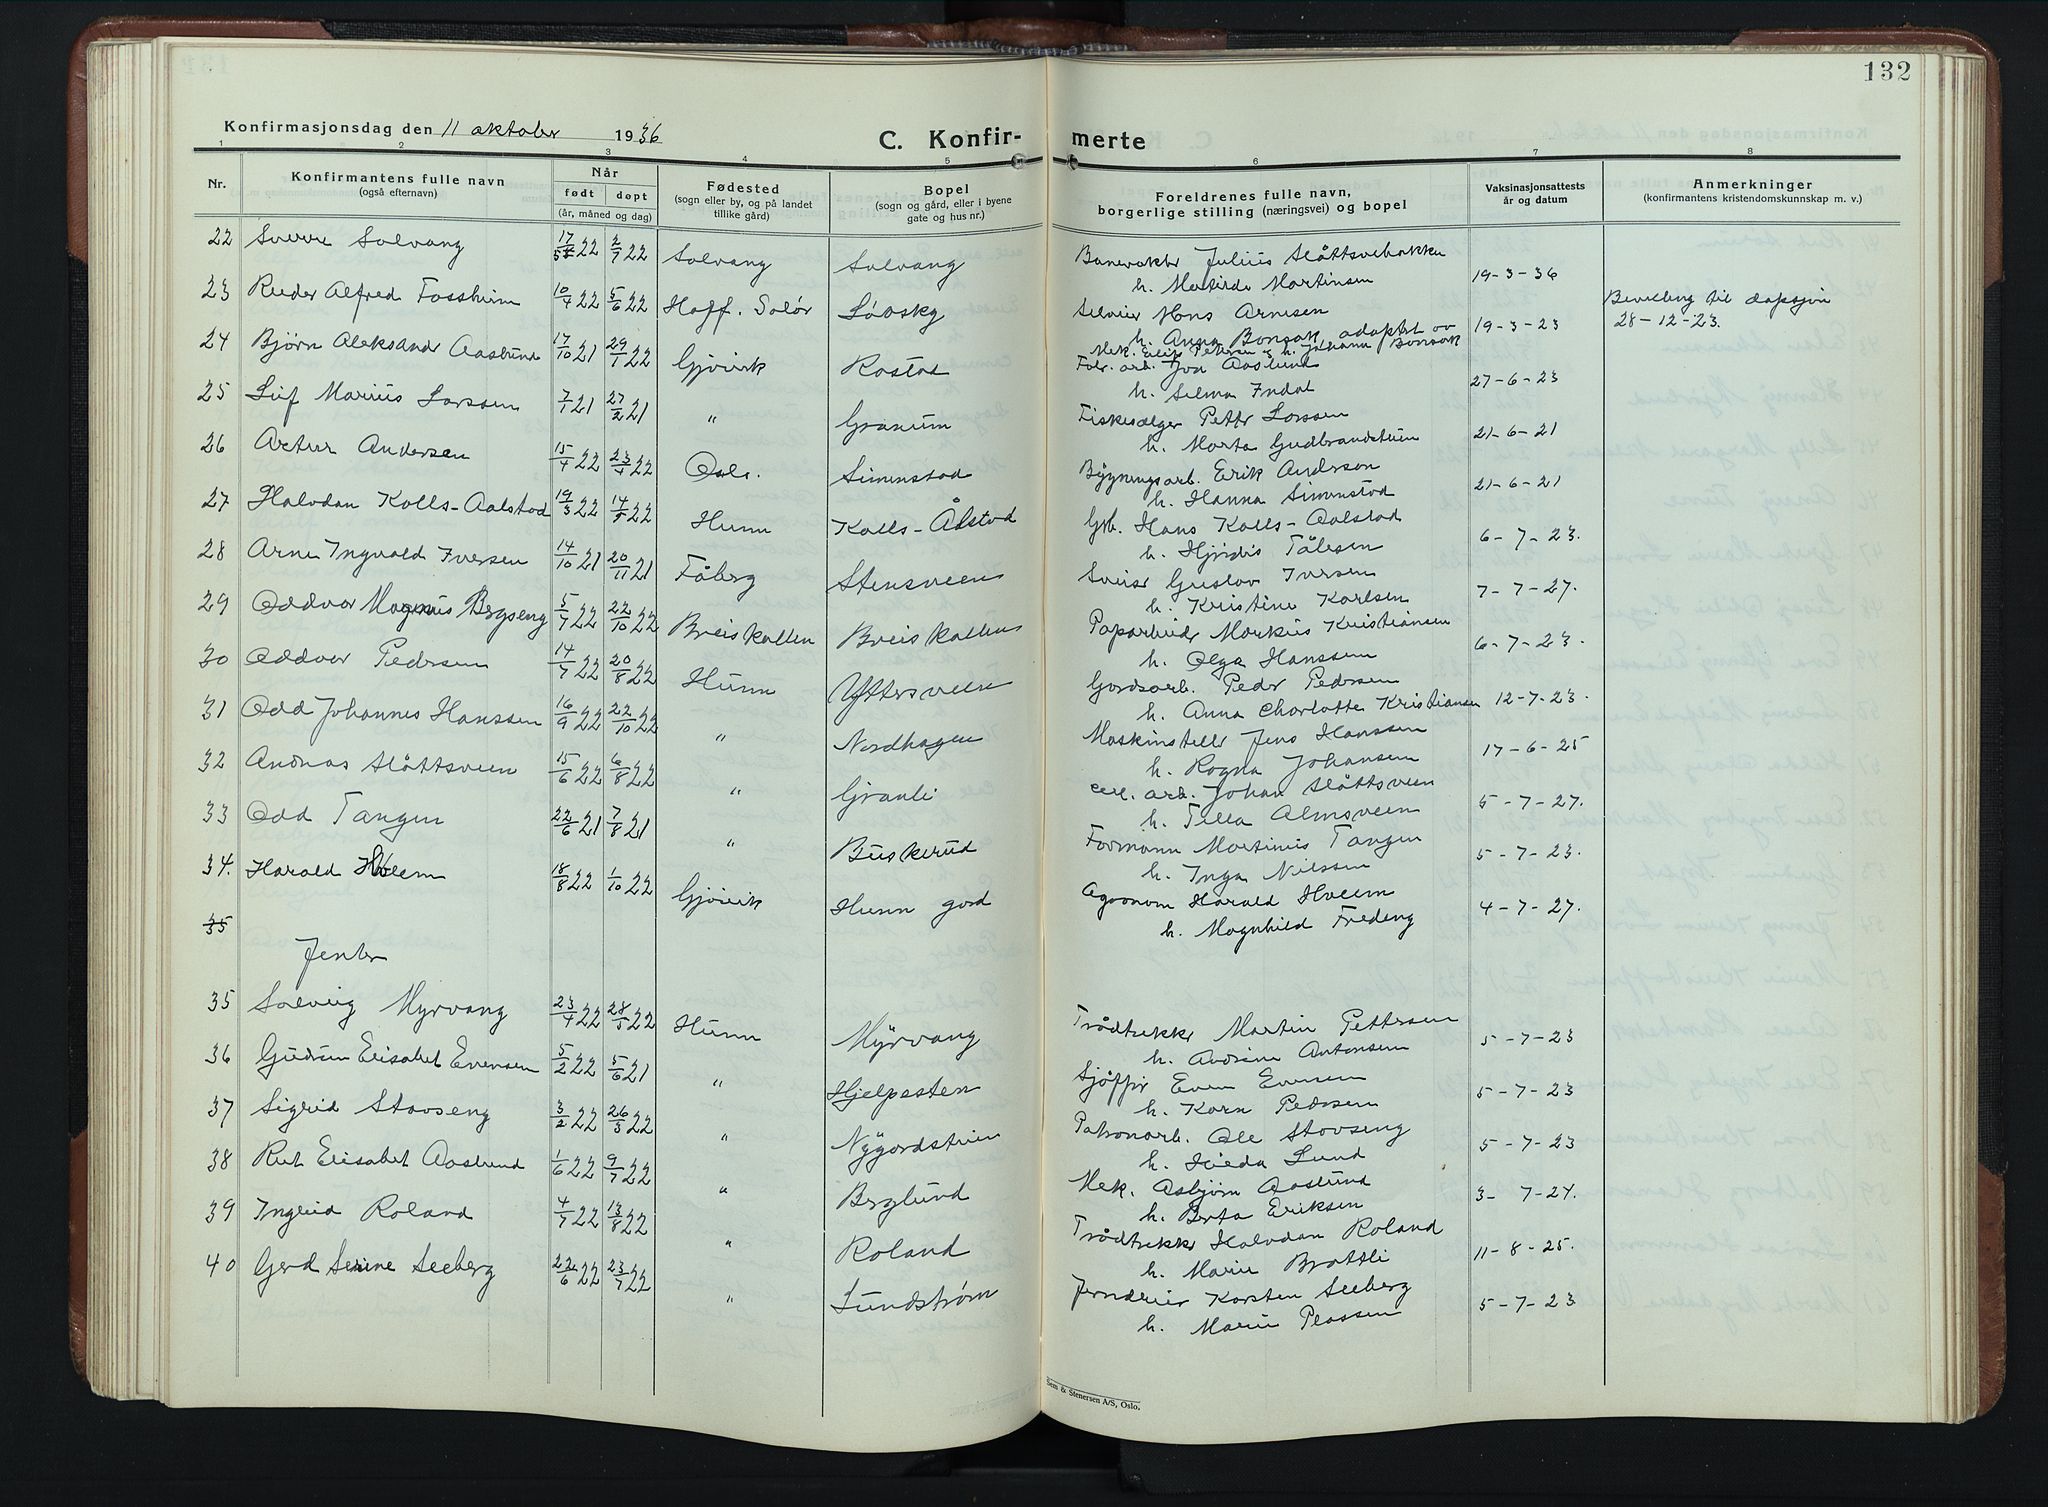 132
Konfirmasjonsdag den 11 oktober 1936
C. Konfir- merte
1 2 3 4 5 6 7 8
Nr. Konfirmantens fulle navn (også efternavn) Når født døpt (år, måned og dag) Fødested (sogn eller by, og på landet tillike gård) Bopel (sogn og gård, eller i byene gate og hus nr.) Foreldrenes fulle navn, borgerlige stilling (næringsvei) og bopel Vaksinasjonsattests år og datum Anmerkninger (konfirmantens kristendomskunnskap m. v.)
22 Sverre Solvang 17/5 22 2/7 22 Solvang Solvang Banevokter Julius Slåttsvebakken
h. Martinsen 19-3-36
23 Reidar Alfred Fossheim 10/4 22 5/6 22 Hoff. Solør Hans Arnesen Bevilling til
h. Anna Bonsak adoptert av 19-3-23 28-12-23.
Mek. Petersen og h. Johanna Bonsak
24 Bjørn Aleksander Aaslund 17/10 21 29/1 22 Gjøvik Rostad Fabr. arb. Jon Aaslund
h. Selma Indal 27-6-23
25 Leif Marius Larssen 7/1 21 27/2 21 " Granum Fiskeselger Petter Larssen
h. Marta Gudbrandsteien 21-6-21
26 Artur Andersen 15/4 22 23/4 22 Oslo. Simenstad Bygningsarb. Erik Anderson
h. Hanna Simenstad 21-6-21
27 Halvdan Kalls-Aalstad 19/3 22 14/5 22 Hunn Kalls-Ålstad Grb. Hans Kalls-Aalstad
h. Hjørdis Tålesen 6-7-23.
28 Arne Ingvald Iversen 14/10 21 20/11 21 Fåberg Stensveen Sveiser Gustav Iversen
h. Kristine Karlsen 7-7-27.
29 Oddvar Magnus Bergseng 5/7 22 22/10 22 Breiskallen Breiskallen Paparbeider Markus Kristiansen
h. Olga Hanssen 6-7-23.
30 Oddvar Pedersen 14/7 22 20/8 22 Hunn Yttersveen Gårdsarb. Peder Pedersen
h. Anna Charlotte Kristiansen 12-7-23.
31 Odd Johannes Hanssen 16/9 22 22/10 22 " Nordhagen Maskinstiller Jens Hanssen
h. Ragna Johansen 17-6-25
32 Andreas Slåttsveen 15/6 22 6/8 22 " Granli Cell. arb. Johan Slåttsveen
h. Tilla Almsveen 5-7-27.
33 Odd Tangen 22/6 21 7/8 21 " Buskerud Formann Martinus Tangen
h. Inga Nielssen 5-7-23.
34. Harald Hveem 18/8 22 1/10 22 Gjøvik Hunn gård Agronom Harald Hveem
h. Magnhild Fredeng 4-7-27.
35
Jenter
35 Solveig Myrvang 23/4 22 28/5 22 Hunn Myrvang Trådtrekker Martin Pettersen
h. Andrine Antonsen 5-7-23
36 Gudrun Elisabet Evensen 5/2 22 5/6 21 " Hjelpesten Sjåffør Even Evensen
h. Karen Pedersen 5-7-23
37 Sigrid Stovseng 3/2 22 26/3 22 " Nygårdsteien Patronarb. Ole Stovseng
h. Hilda Lund 5-7-23
38 Rut Elisabet Aaslund 1/6 22 9/7 22 " Berglund Mek. Asbjørn Aaslund
h. Berta Eriksen 3-7-24.
39 Ingrid Roland 4/7 22 13/8 22 " Roland Trådtrekker Halvdan Roland
h. Marie Brattli 11-8-25.
40 Gerd Serine Seeberg 22/6 22 23/7 22 " Lundstrøm Jerndreier Karsten Seeberg
h. Marie Plassen 5-7-23
Sem & Stenersen A/S, Oslo.